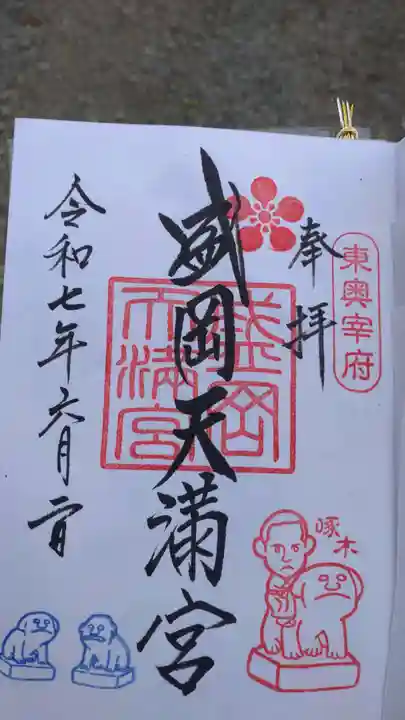 東奥宰府
奉拝
盛岡天満宮
盛岡
天満宮
啄木
令和七年六月二日